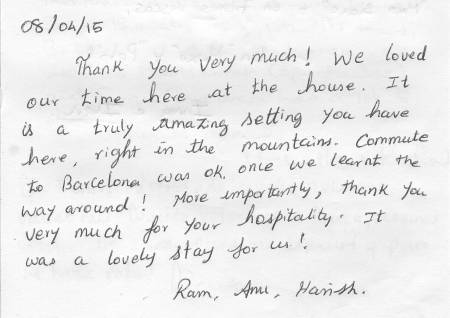 08/04/15
Thank you very much! We loved
our time here at the house. It
is a truly amazing setting you have
here, right in the mountains. Commute
to Barcelona was ok, once we learnt the
way around! More importantly, thank you
very much for your hospitality. It
was a lovely stay for us!
Ram, Anu, Harish.